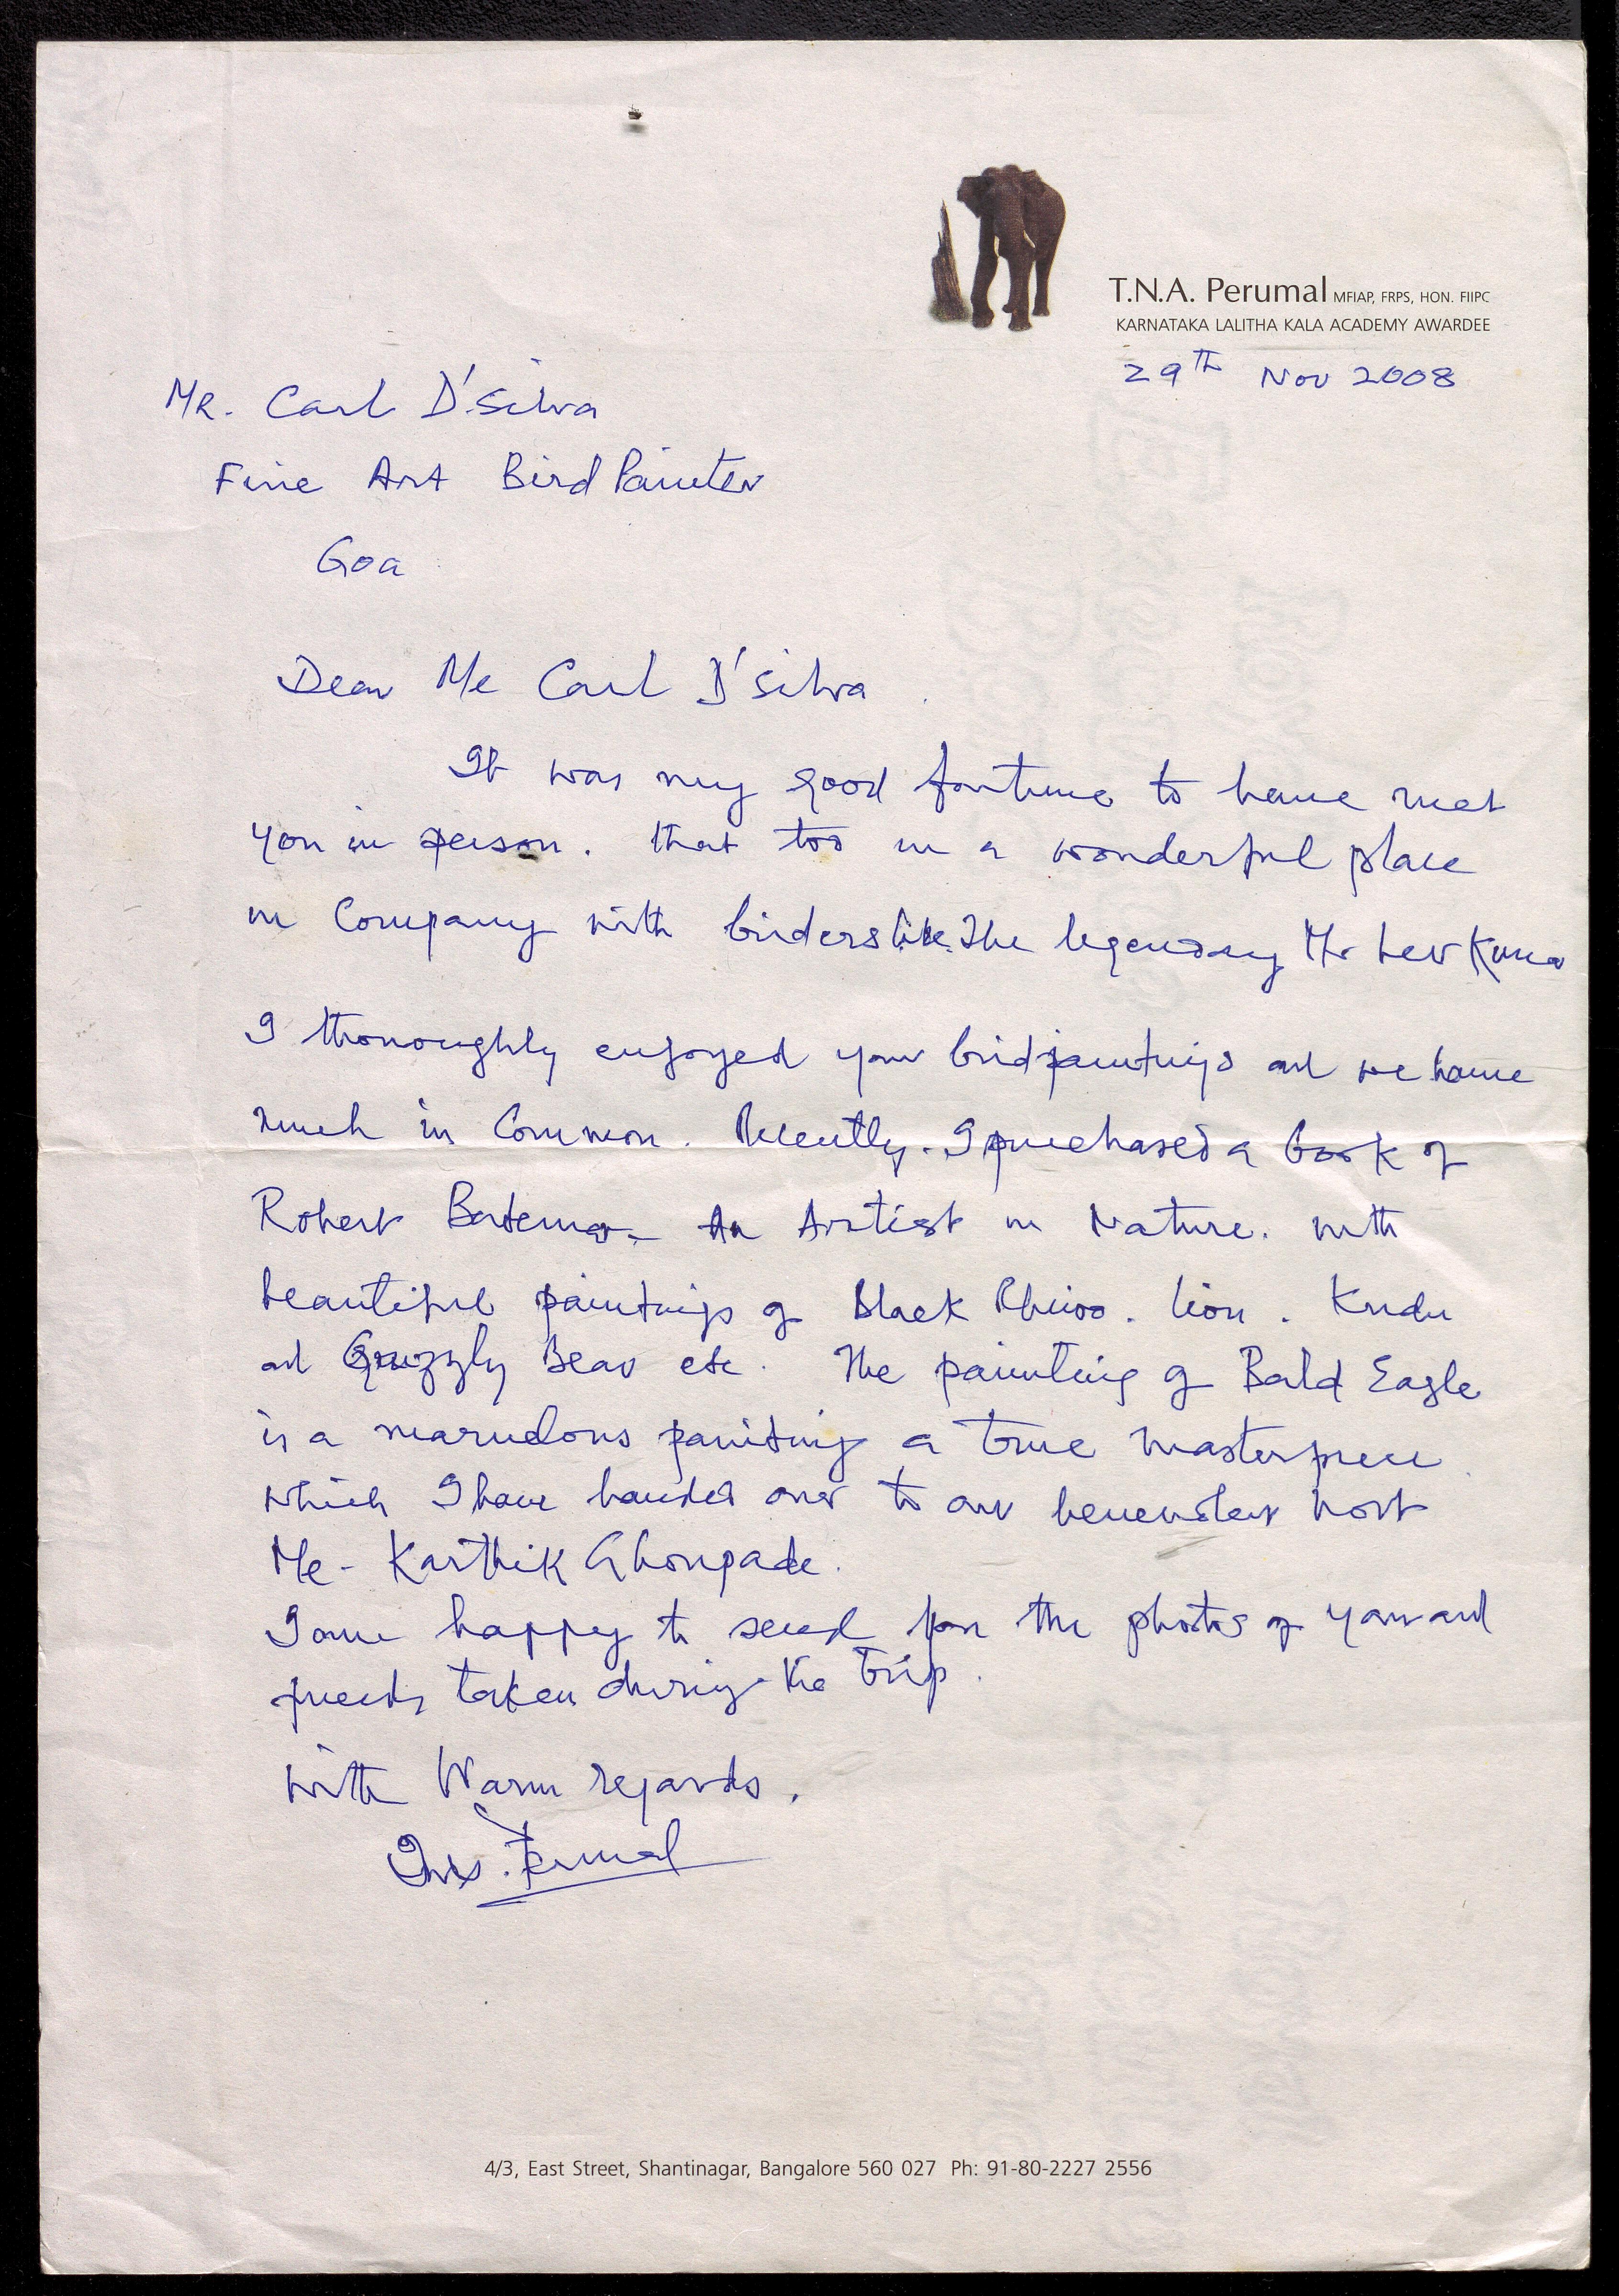 T.N.A. Perumal MFIAP, FRPS, HON. FIIPC
KARNATAKA LALITHA KALA ACADEMY AWARDEE
29th Nov 2008
Mr. Carl D'Silva
Fine Art Bird Painter
Goa
Dear Mr Carl D'Silva
It was my good fortune to have met
you in person. that too in a wonderful place
in Company with birders like the legendary Mr
I thoroughly enjoyed your bird paintings and we have
much in Common. Recently. I purchased a book of
Robert Bateman - An Artist in Nature. with
beautiful paintings of Black Rhino. lion. Kudu
and Grizzly Bear etc. The painting of Bald Eagle
is a marvelous painting a true masterpiece
which I have handed over to our benevolent host
Mr. Karthik Ghorpade.
I am happy to send you the photos of your and
friends taken during the trip.
with Warm regards,
Perumal
4/3, East Street, Shantinagar, Bangalore 560 027 Ph: 91-80-2227 2556